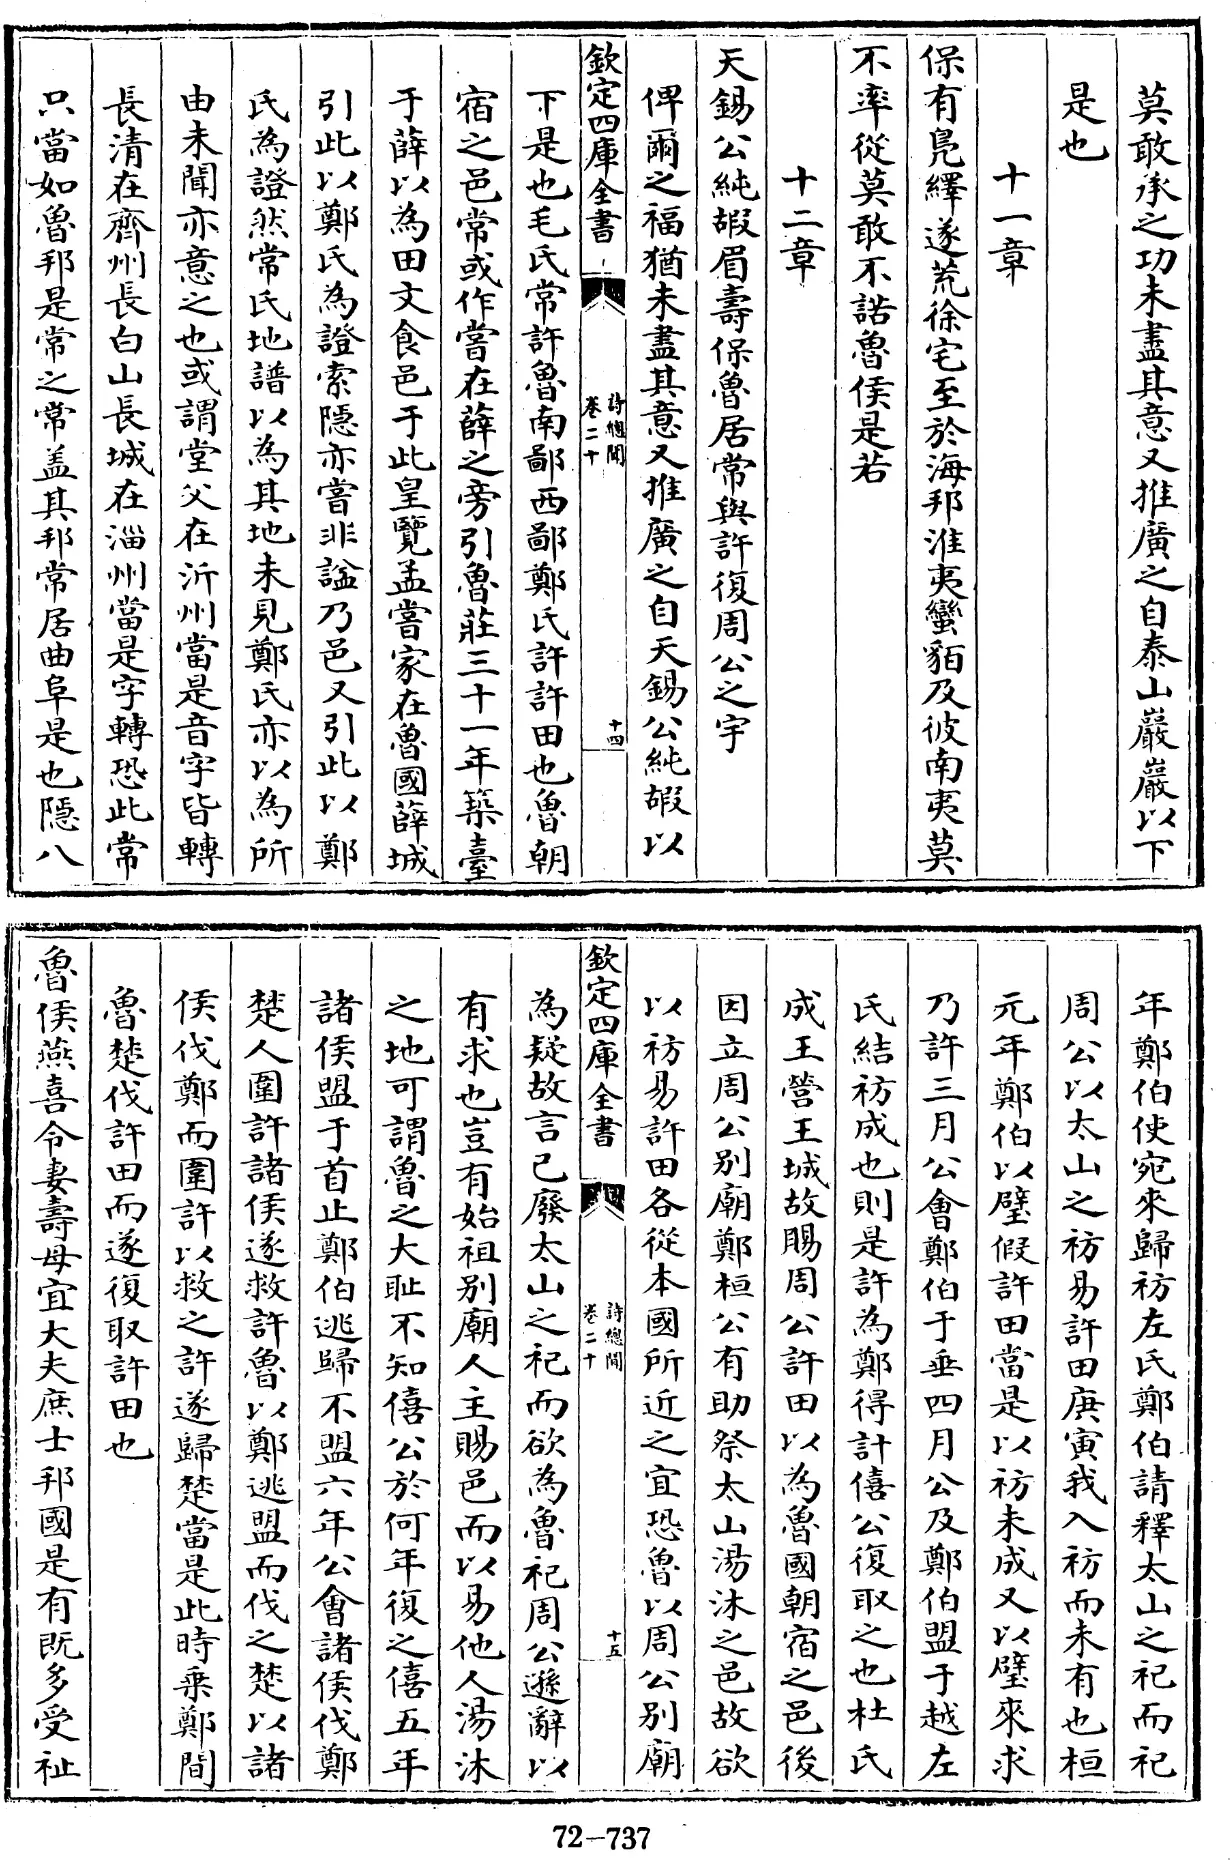 莫敢承之功未盡其意又推廣之自泰山巖巖以下
是也
十一章
保有鳧繹遂荒徐宅至於海邦淮夷蠻貊及彼南夷莫
不率從莫敢不諾魯侯是若
十二章
天錫公純嘏眉壽保魯居常與許復周公之宇
俾爾之福猶未盡其意又推廣之自天錫公純嘏以
欽定四庫全書
詩總聞
卷二十
十四
下是也毛氏常許魯南鄙西鄙鄭氏許許田也魯朝
宿之邑常或作嘗在薛之旁引魯莊三十一年築臺
于薛以為田文食邑于此皇覽孟嘗家在魯國薛城
引此以鄭氏為證索隱亦嘗非謚乃邑又引此以鄭
氏為證然常氏地譜以為其地未見鄭氏亦以為所
由未聞亦意之也或謂堂父在沂州當是音字皆轉
長清在齊州長白山長城在淄州當是字轉恐此常
只當如魯邦是常之常盖其邦常居曲阜是也隱八
年鄭伯使宛來歸祊左氏鄭伯請釋太山之祀而祀
周公以太山之祊易許田庚寅我入祊而未有也桓
元年鄭伯以璧假許田當是以祊未成又以璧來求
乃許三月公會鄭伯于垂四月公及鄭伯盟于越左
氏結祊成也則是許為鄭得計僖公復取之也杜氏
成王營王城故賜周公許田以為魯國朝宿之邑後
因立周公别廟鄭桓公有助祭太山湯沐之邑故欲
以祊易許田各從本國所近之宜恐魯以周公别廟
欽定四庫全書
詩總聞
卷二十
十五
為疑故言已廢太山之祀而欲為魯祀周公遜辭以
有求也豈有始祖别廟人主賜邑而以易他人湯沐
之地可謂魯之大恥不知僖公於何年復之僖五年
諸侯盟于首止鄭伯逃歸不盟六年公會諸侯伐鄭
楚人圍許諸侯遂救許魯以鄭逃盟而伐之楚以諸
侯伐鄭而圍許以救之許遂歸楚當是此時乗鄭間
魯楚伐許田而遂復取許田也
魯侯燕喜令妻壽母宜大夫庶士邦國是有既多受祉
72-737